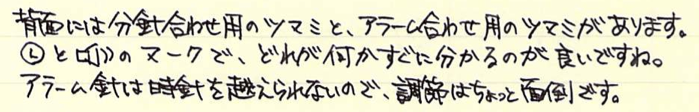 背面には分針合わせ用のツマミと、アラーム合わせ用のツマミがあります。
🕒と🔊のマークで、どれが何かすぐに分かるのが良いですね。
アラーム針は時針を越えられないので、調節はちょっと面倒です。